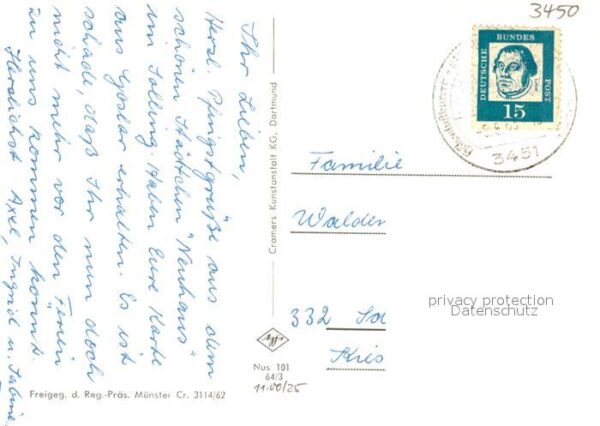 3450
DEUTSCHE
BUNDES
POST
15
3451
Ihr Lieben,
Herzl. Pfingstgrüße aus dem
schönen Städtchen "Neuhaus"
im Solling. Haben Eure Karte
aus Goslar erhalten. Es ist
schade, daß Ihr nun doch
nicht mehr vor den Ferien
zu uns kommen könnt.
Herzlichst Axel, Ingrid u. Sabine,
Cramers Kunstanstalt KG, Dortmund
Familie
Walden
332 Sa
Kies
privacy protection
Datenschutz
Nus 101
64/3
11.00/25
Freigeg. d. Reg.-Präs. Münster Cr. 3114/62